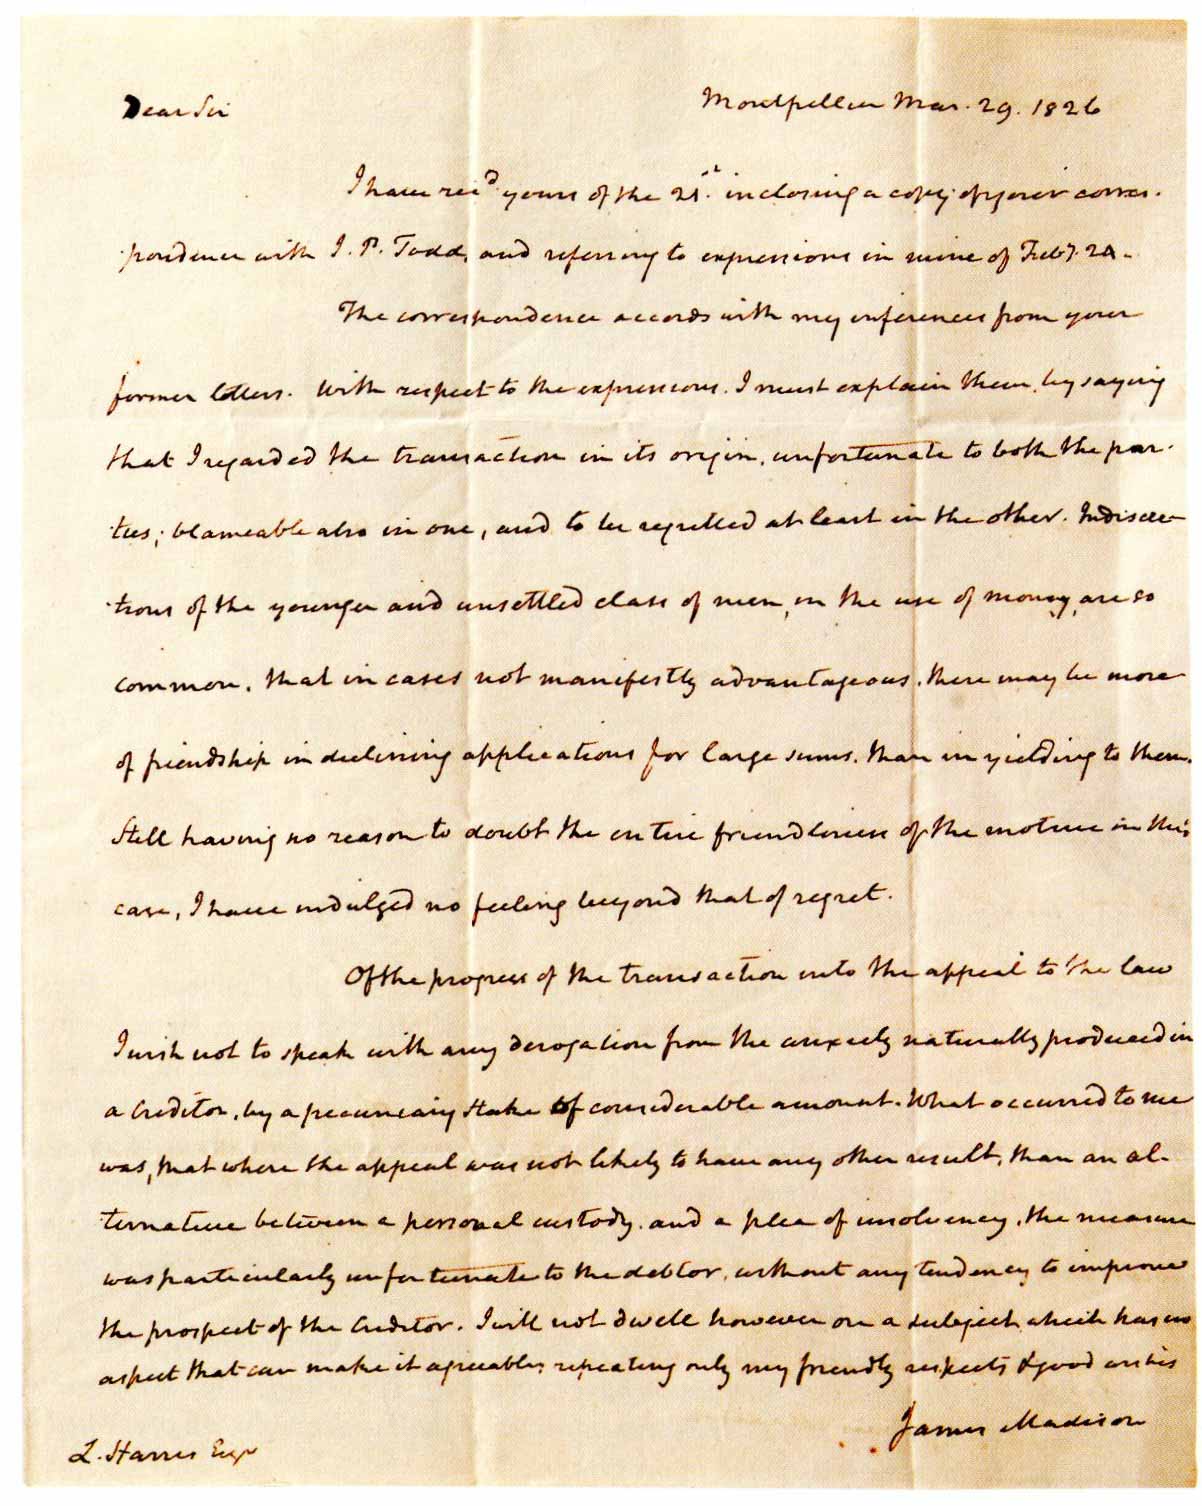 Dear Sir
Montpellier Mar. 29. 1826
I have recd. yours of the 21st. inclosing a copy of your corres-
pondence with J. P. Todd, and referring to expressions in mine of Feby. 20.
The correspondence accords with my inferences from your
former letters. With respect to the expressions. I must explain them, by saying
that I regarded the transaction in its origin, unfortunate to both the par-
ties; blameable also in one, and to be regretted at least in the other. Indiscre-
tions of the younger and unsettled class of men, in the use of money, are so
common, that in cases not manifestly advantageous, there may be more
of friendship in declining applications for large sums, than in yielding to them.
Still having no reason to doubt the entire friendliness of the motive in this
case, I have indulged no feeling beyond that of regret.
Of the progress of the transaction into the appeal to the law
I wish not to speak with any derogation from the anxiety naturally produced in
a Creditor, by a pecuniary stake of considerable amount. What occurred to me
was, that where the appeal was not likely to have any other result, than an al-
ternative between a personal custody, and a plea of insolvency, the measure
was particularly unfortunate to the debtor, without any tendency to improve
the prospect of the Creditor. I will not dwell however on a subject which has no
aspect that can make it agreeable; repeating only my friendly respects & good wishes
James Madison
L. Harris Esqr